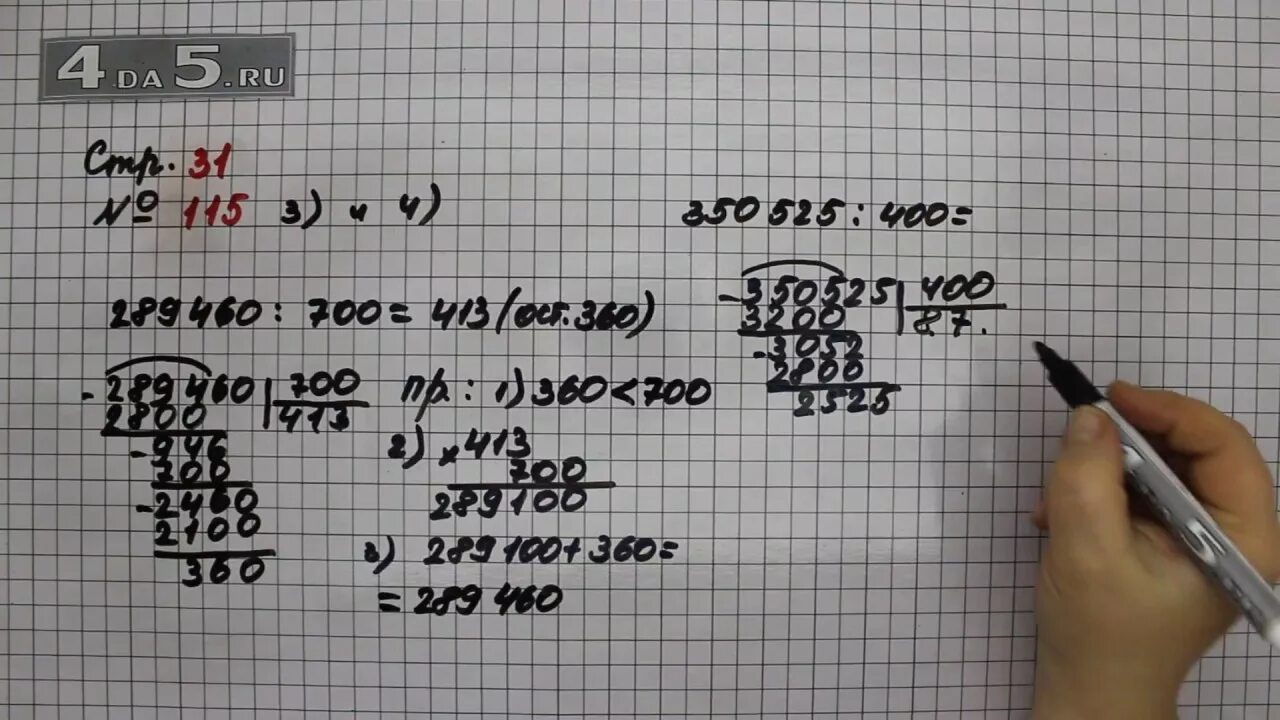 4.DA5.RU
Стр. 31
№ 115 3) и 4)
289 460 : 700 = 413 (ост. 360)
- 289460 | 700
2800 413
- 946
700
- 2460
2100
360
пр. : 1) 360 < 700
2) × 413
700
289100
3) 289 100 + 360 =
= 289 460
350 525 : 400 =
- 350525 | 400
3200 87.
- 3052
2800
2525